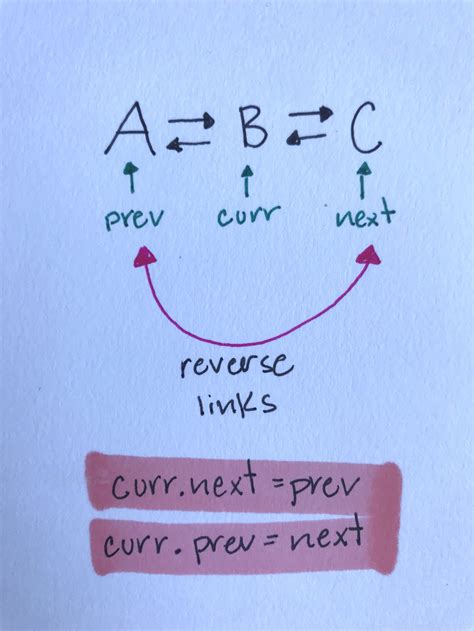 A ⇄ B ⇄ C
prev curr next
reverse
links
curr.next = prev
curr.prev = next